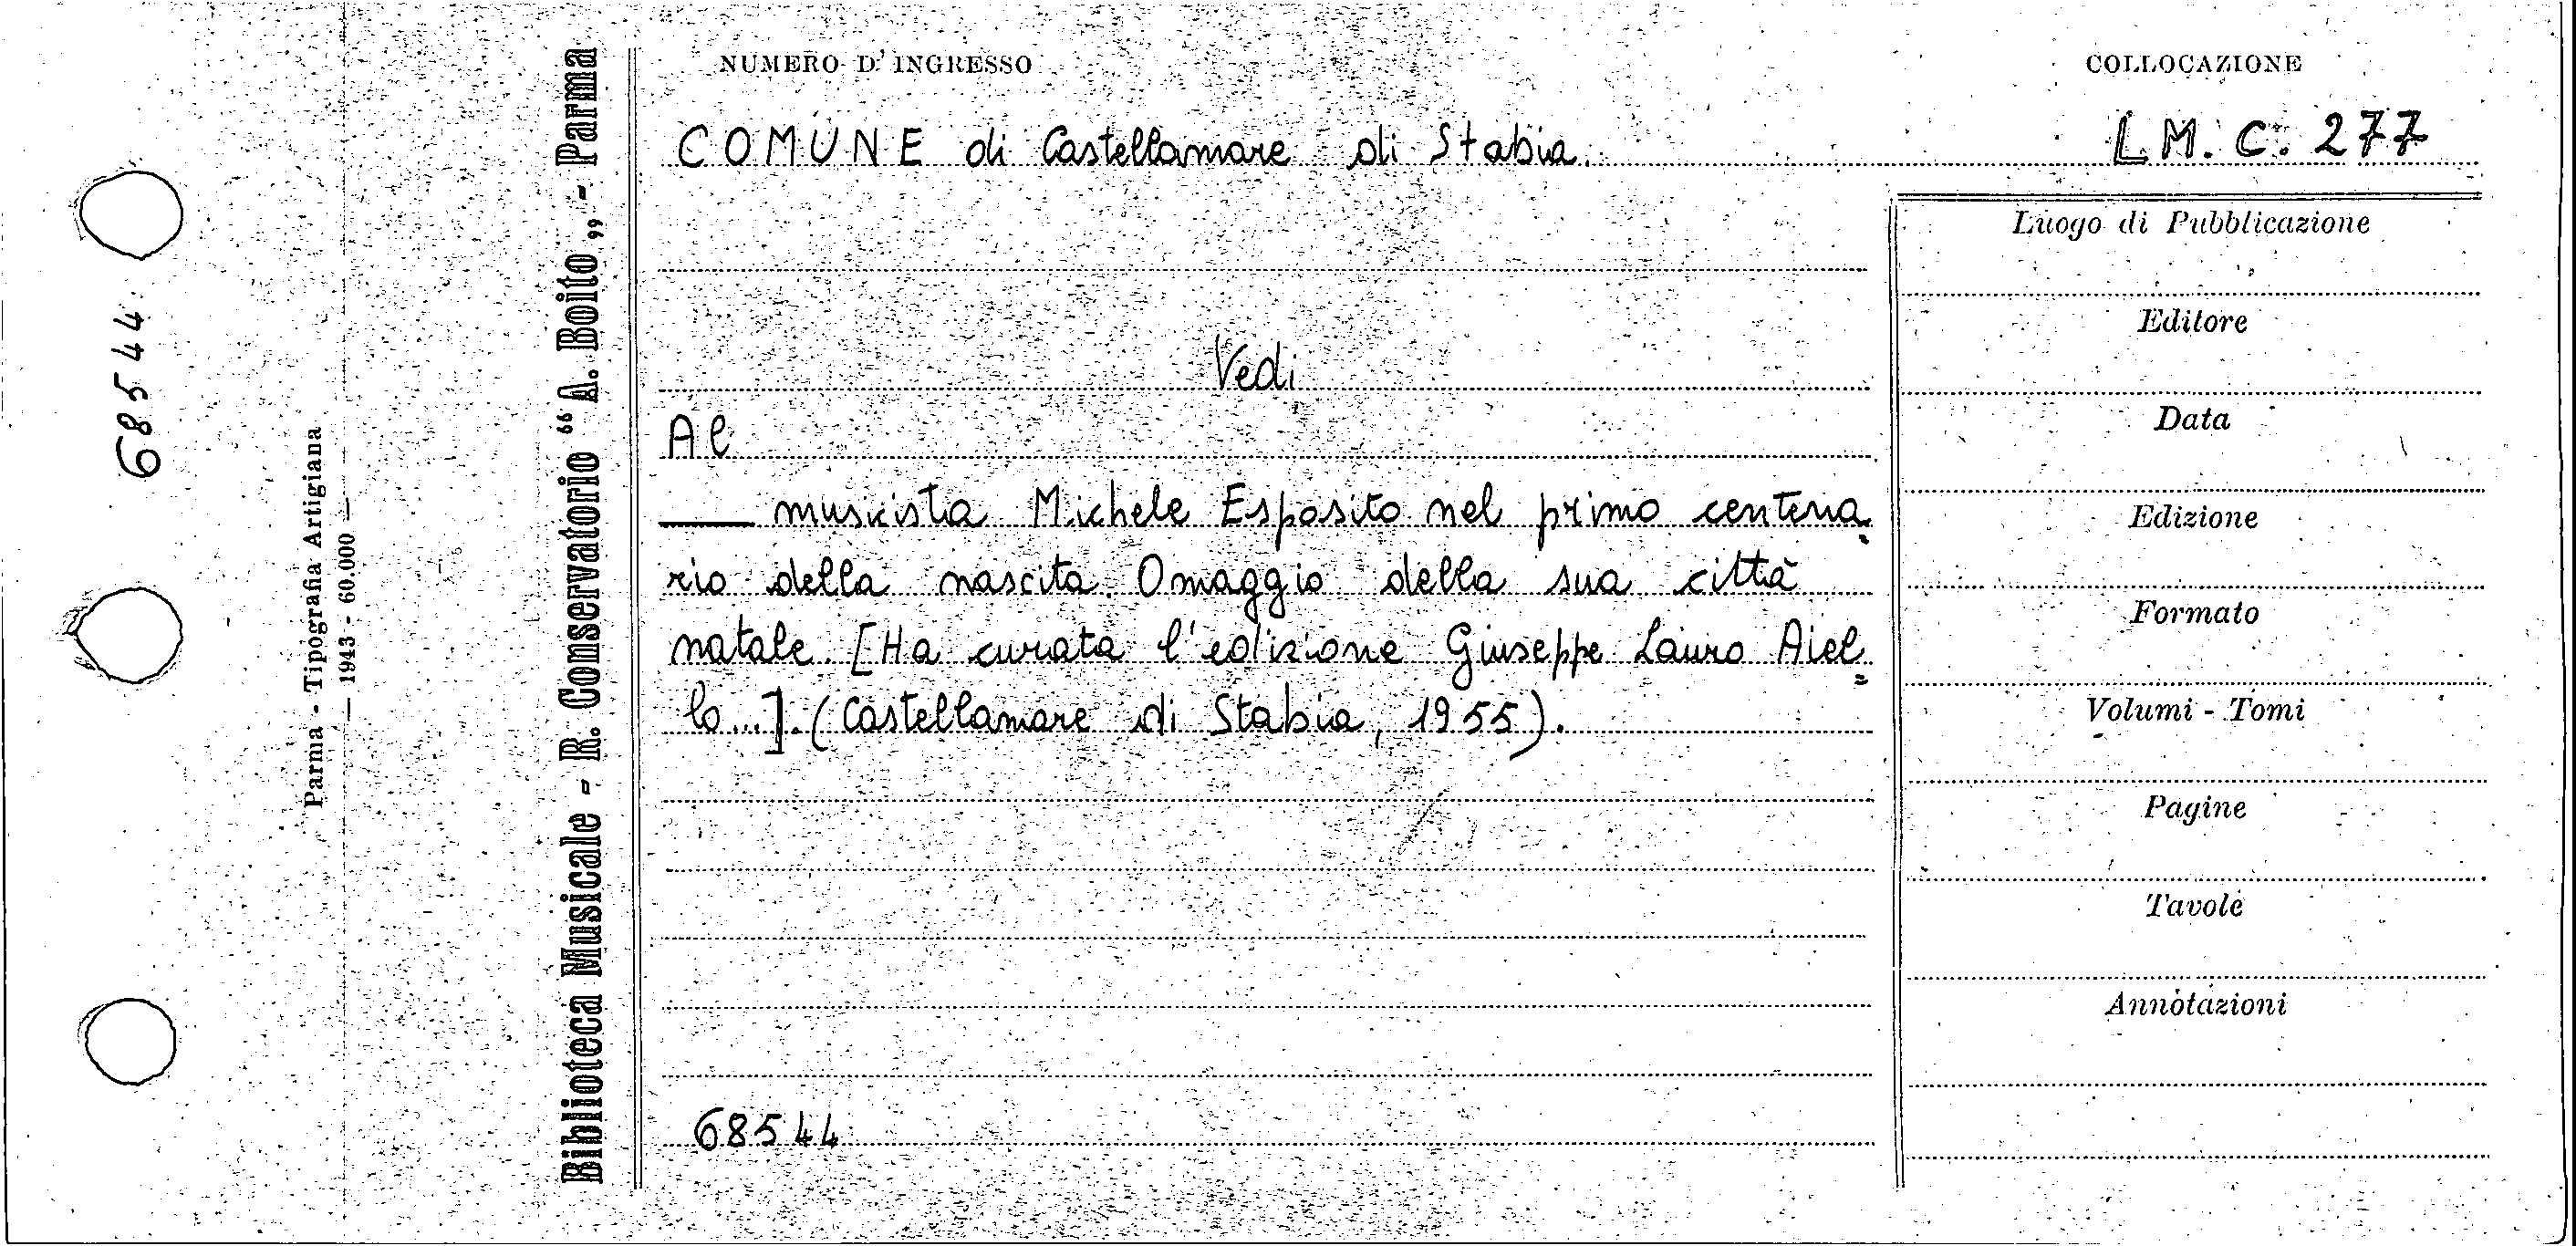 68544
Parma - Tipografia Artigiana
— 1943 - 60.000 —
Biblioteca Musicale - R. Conservatorio “ A. Boito „ - Parma
NUMERO D' INGRESSO
COLLOCAZIONE
COMUNE di Castellamare di Stabia.
L.M. C. 277
Vedi
Al
——— musicista Michele Esposito nel primo centena-
rio della nascita. Omaggio della sua città
natale. [Ha curata l'edizione Giuseppe Lauro Aiel=
lo...]. (Castellamare di Stabia, 1955).
68544
Luogo di Pubblicazione
Editore
Data
Edizione
Formato
Volumi - Tomi
Pagine
Tavole
Annotazioni